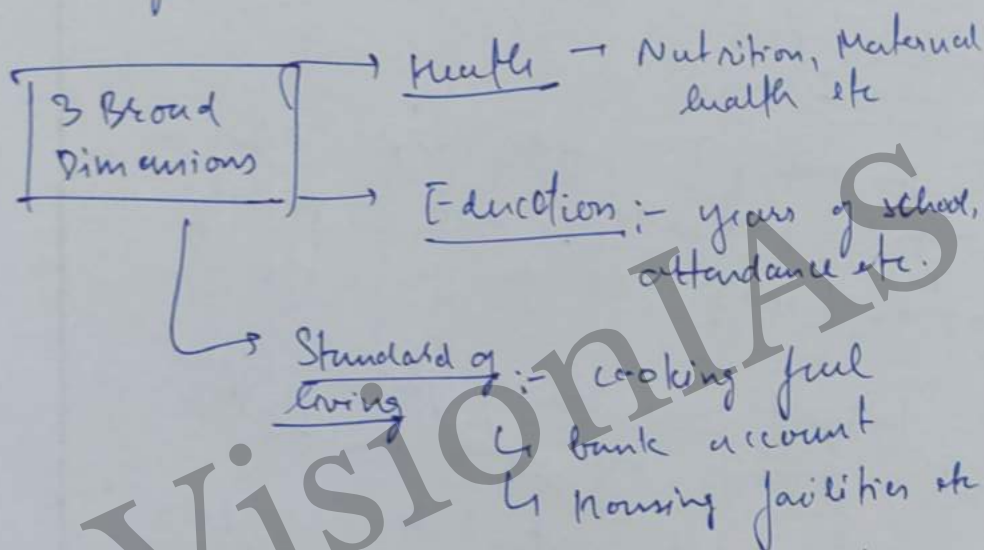 3 Broad
Dimensions
Health → Nutrition, Maternal
health etc
Education :- years of school,
attendance etc.
Standard of
living :- cooking fuel
↳ bank account
↳ Housing facilities etc
VisionIAS